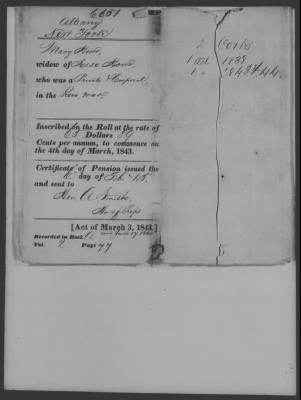 6651
Albany
New York
Mary
widow of Jesse
who was a Private & Corporal
in the Rev. war
Inscribed on the Roll at the rate of
Dollars 89
Cents per annum, to commence on
the 4th day of March, 1843.
Certificate of Pension issued the
day of
and sent to
Hon A Smith
[Act of March 3, 1843.]
Recorded in Book A
Vol. 2 Page 77
2 Certs
1838
1843 & 44